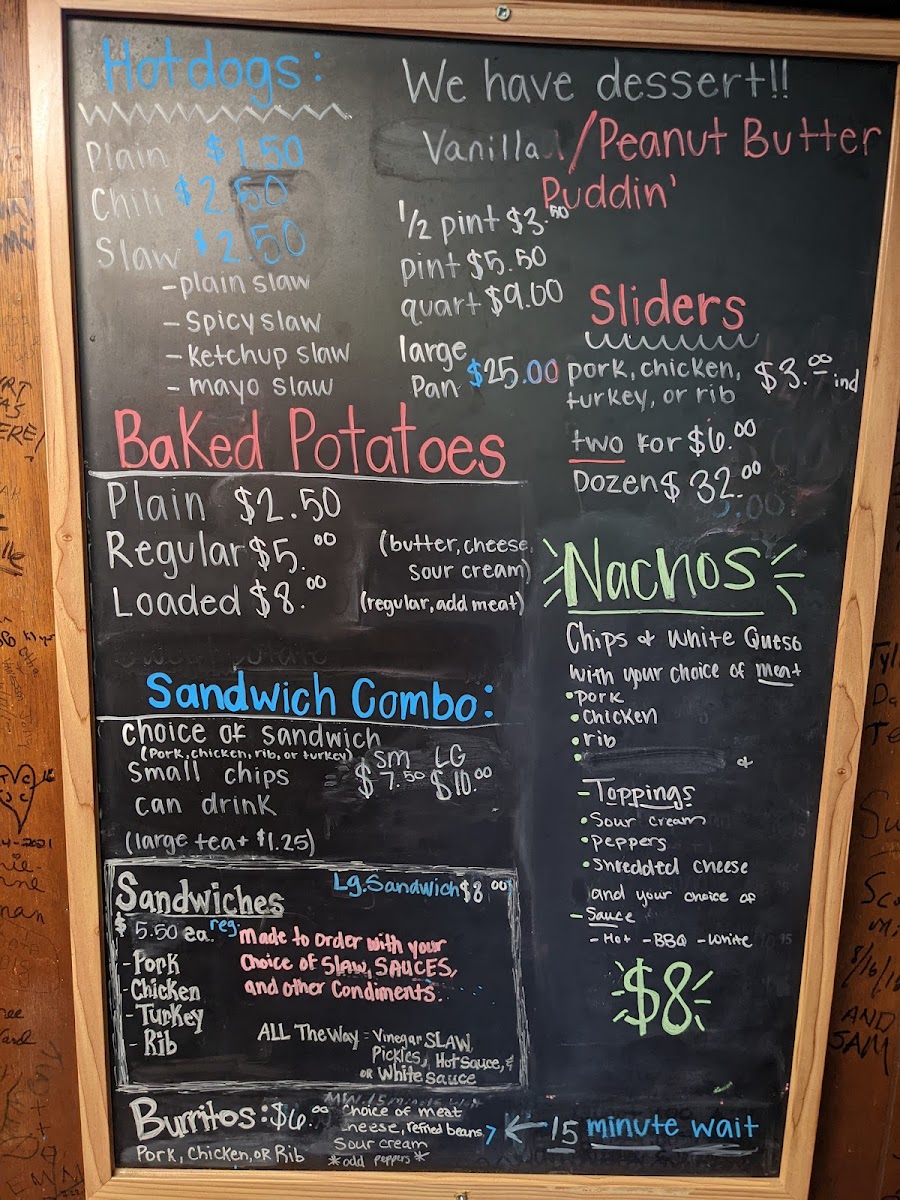 Hotdogs:
Plain $1.50
Chili $2.50
Slaw $2.50
-plain slaw
-Spicy slaw
-ketchup slaw
-mayo slaw
We have dessert!!
Vanilla/Peanut Butter
Puddin'
1/2 pint $3.50
pint $5.50
quart $9.00
large
Pan $25.00
Sliders
pork, chicken, $3.00 ind
turkey, or rib
two for $6.00
Dozen $32.00
Baked Potatoes
Plain $2.50
Regular $5.00 (butter, cheese,
sour cream)
Loaded $8.00 (regular, add meat)
Nachos
Chips & White Queso
with your choice of meat
•Pork
•Chicken
•rib
&
-Toppings
•Sour cream
•peppers
•Shredded cheese
and your choice of
-Sauce
-Hot -BBQ -White
$8
Sandwich Combo:
choice of sandwich
(Pork, chicken, rib, or turkey) SM LG
small chips $7.50 $10.00
can drink
(large tea + $1.25)
Sandwiches Lg. Sandwich $8.00
$5.50 ea. reg
-Pork
-Chicken
-Turkey
-Rib
made to order with your
Choice of Slaw, SAUCES,
and other Condiments.
ALL The Way = Vinegar SLAW,
Pickles, Hot Sauce, &
OR White Sauce
Burritos: $6.00 Choice of meat
cheese, refried beans,
Sour cream
*add peppers*
Pork, Chicken, OR Rib
15 minute wait